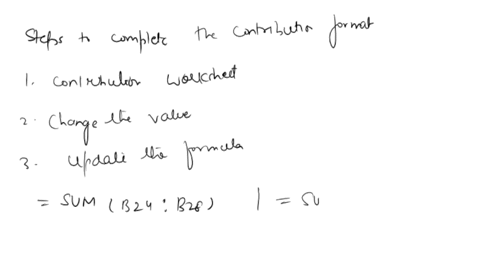 Steps to complete the contribution format
1. Contribution worksheet
2. Change the value
3. Update the formula
= SUM (B24 : B28) | = SU